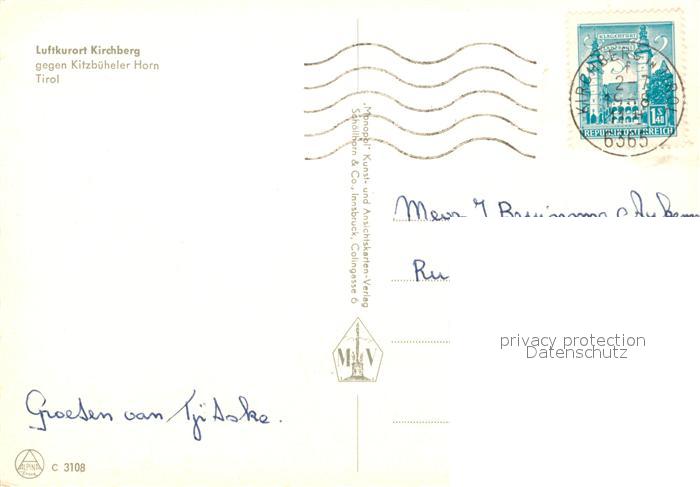 Luftkurort Kirchberg
gegen Kitzbüheler Horn
Tirol
KLAGENFURT
1.40
REPUBLIK ÖSTERREICH
KIRCHBERG IN TIROL
6365
"Monopol" Kunst- und Ansichtskarten-Verlag
Schöllhorn & Co., Innsbruck, Colingasse 6
Mevr
Ru
privacy protection
Datenschutz
M V
Groeten van Tjitske.
ALPINA
C 3108